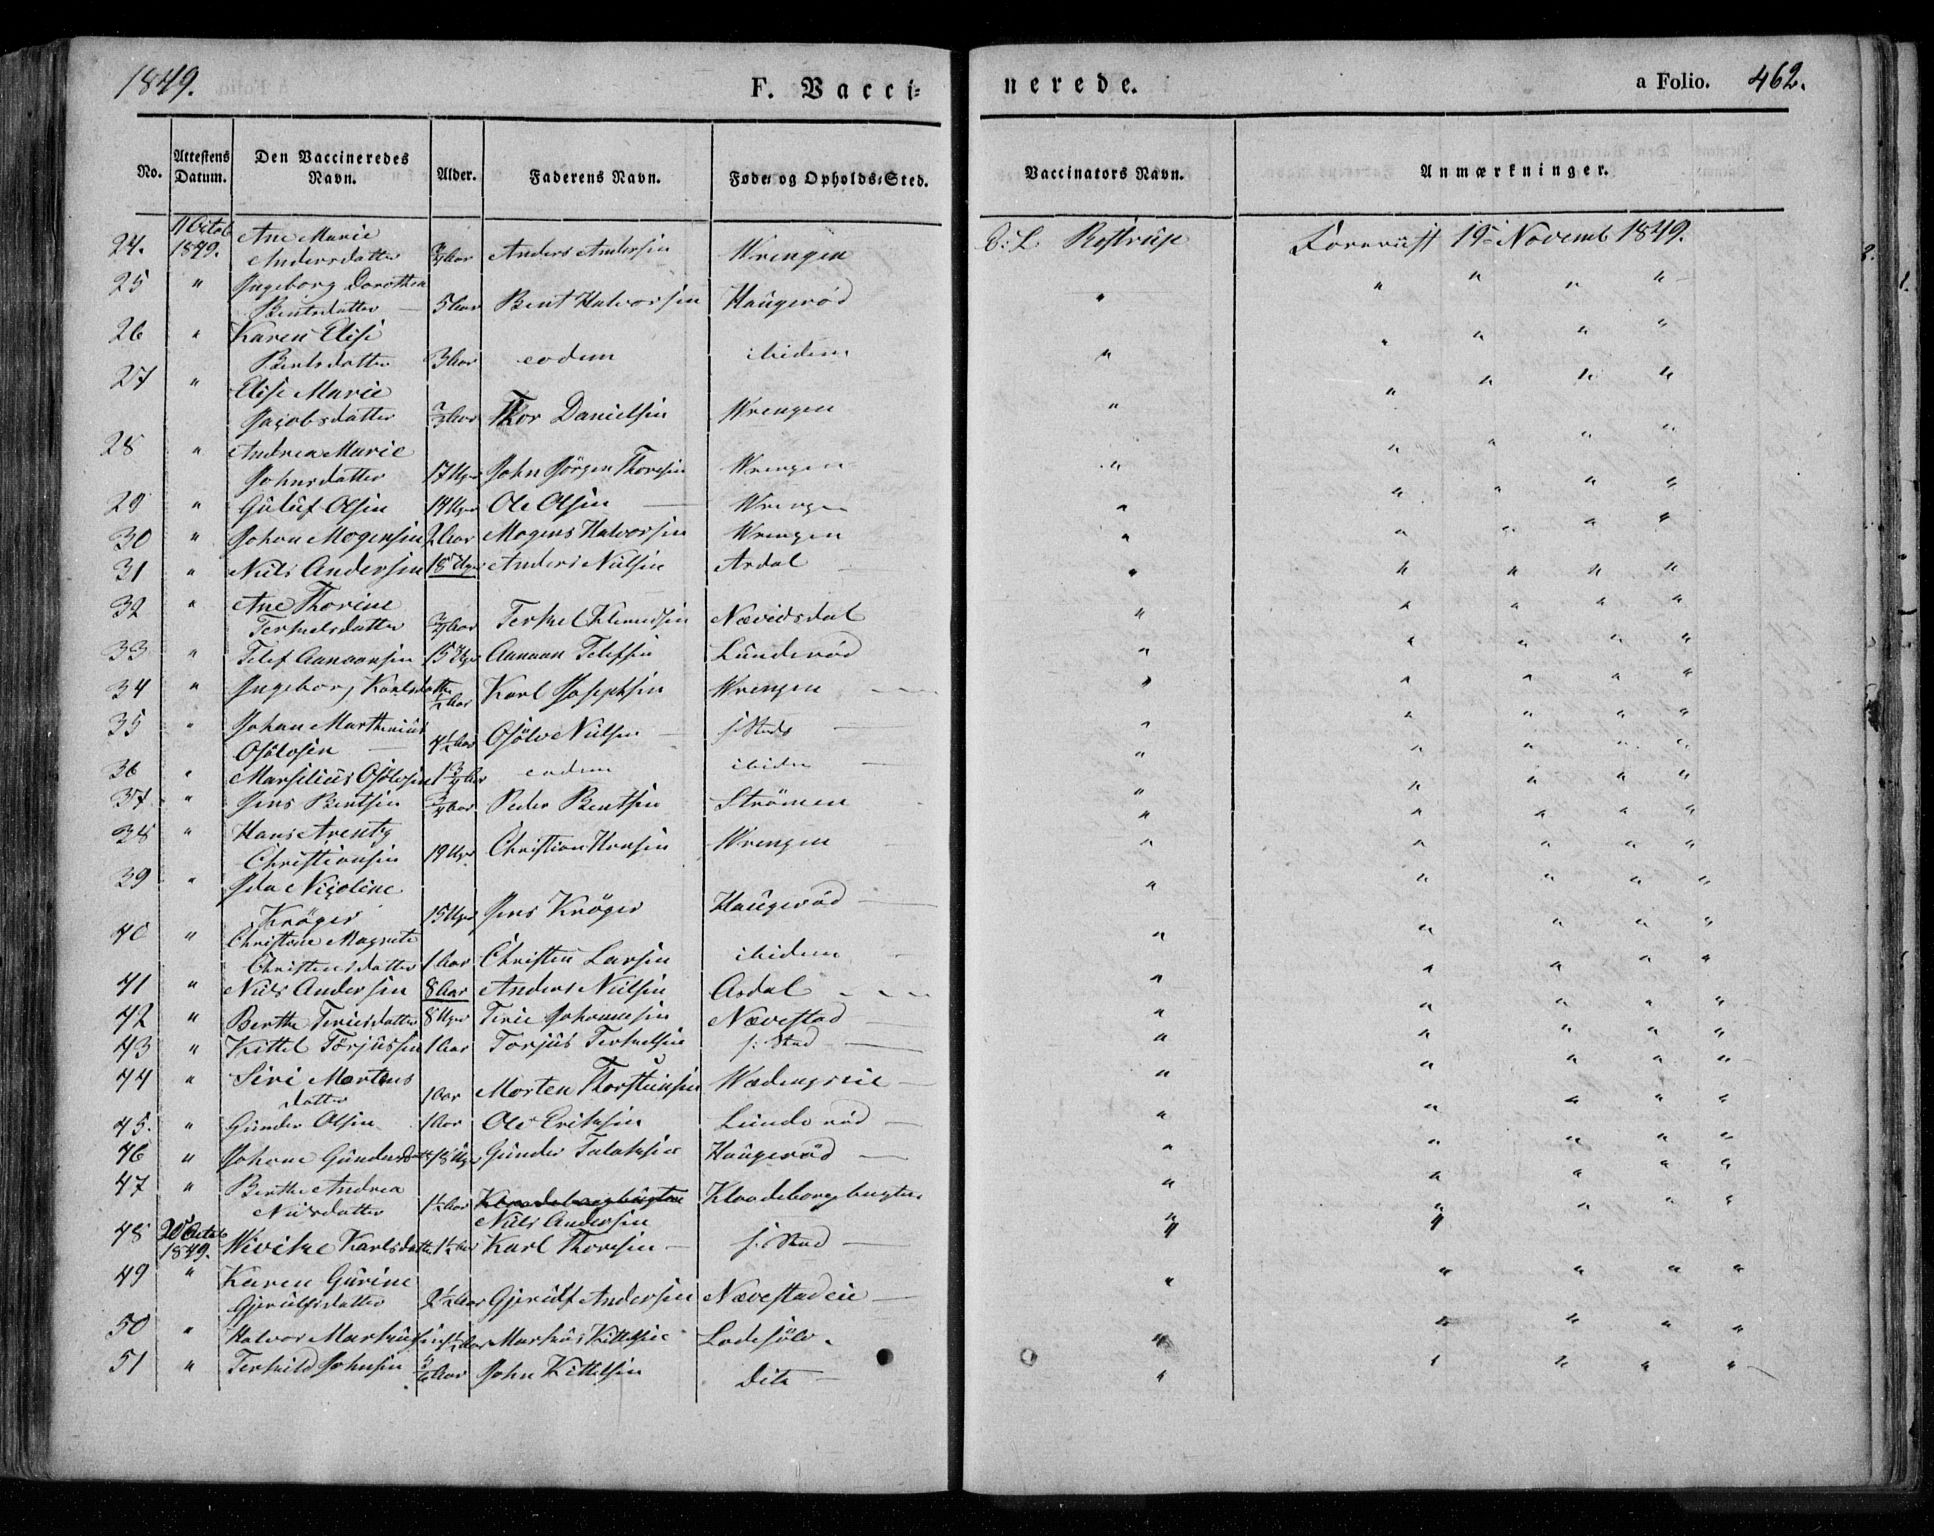 1849. F. Vacci- nerede. a Folio. 462.
No. Attestens Datum. Den Vaccineredes Navn. Alder. Faderens Navn. Føde- og Opholds-Sted. Vaccinators Navn. Anmærkninger.
24. 11 Octob 1849. Ane Marie Andersdatter 3/4 Aar Anders Andersen Wrengen E: L Rostrup Forevist 19 Novemb 1849.
25 " Ingeborg Dorothea Bentsdatter 5 Aar Bent Halvorsen Haugerød " " " " "
26 " Karen Elise Bentsdatter 3 Aar eodem ibidem " " " " "
27 " Elise Marie Jacobsdatter Aar Thor Danielsen Wrengen " " " " "
28 " Andrea Marie Johnsdatter 17 Uger John Jörgen Thoresen Wrengen " " " " "
29 " Guluf Olsen 14 Uger Ole Olsen Wrengen " " " " "
30 " Johan Mogensen 2 Aar Mogens Halvorsen Wrengen " " " " "
31 " Niels Andersen 18 Uger Anders Nielsen Ardal " " " " "
32 " Ane Thorine Terkelsdatter 3/4 Aar Terkel Knudsen Nævidsdal " " " " "
33 " Telef Aanonsen 15 Uger Aanaan Telefsen Lunderød " " " " "
34 " Ingeborg Karlsdatter 1/2 Aar Karl Josephsen Wrengen " " " " "
35 " Johan Marthinius Osölvsen 4 1/2 Aar Osölv Nielsen f: Steds " " " " "
36 " Marselius Osölvsen 1 3/4 Aar eodem ibidem " " " " "
37. " Jens Bentsen 3/4 Aar Peder Bentsen Strömen " " " " "
38 " Hans Arentz Christiansen 19 Uger Christian Hansen Wrengen " " " " "
39 " Ida Nicoline Kröger 15 Uger Jens Kröger Haugerød " " " " "
40 " Christine Magrete Christensdatter 1 Aar Christen Larsen ibidem " " " " "
41 " Niels Andersen 8 Aar Anders Nielsen Asdal " " " " "
42 " Berthe Teriesdatter 8 Uger Terie Johannesen Nævestad " " " " "
43 " Kittel Törjussen 1 Aar Torjus Terkelsen f: Stad " " " " "
44 " Siri Mortensdatter 1 Aar Morten Thorsteinsen " " " " "
45. " Gunder Olsen 1 Aar Ole Eriksen Lunderød " " " " "
46 " Johane Gundersdatter 18 Uger Gunder Talaksen Haugerød " " " " "
47 " Berthe Andrea Nielsdatter 1 1/2 Aar Kloadeborgbugten Niels Andersen Kloadeborgbugten " " " " "
48 20 Octob 1849. Wivike Karlsdatter 1 1/2 Aar Karl Thoresen f: Stad " "
49 " Karen Gurine Gjerulfsdatter 2 1/2 Aar Gjerulf Andersen Nævestadeie " " " " "
50 " Halvor Markusen 1/2 Aar Markus Kittelsen Ladesölv. " " " " "
51 " Terkild Johnsen Aar John Kittelsen Dito " " " " "